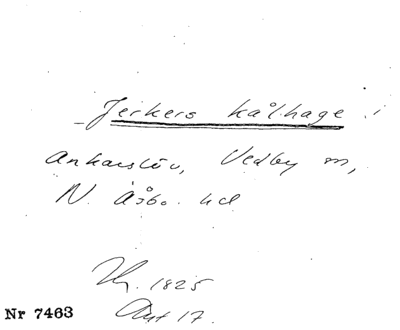 Jeikers kålhage i
Ankarslöv, Vedby m,
N. Åsbo. hd
1825
17.
Nr 7463